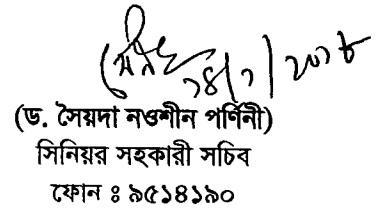 ২৪/৭/২০১৮
(ড. সৈয়দা নওশীন পর্ণিনী)
সিনিয়র সহকারী সচিব
ফোন ঃ ৯৫১৪১৯০